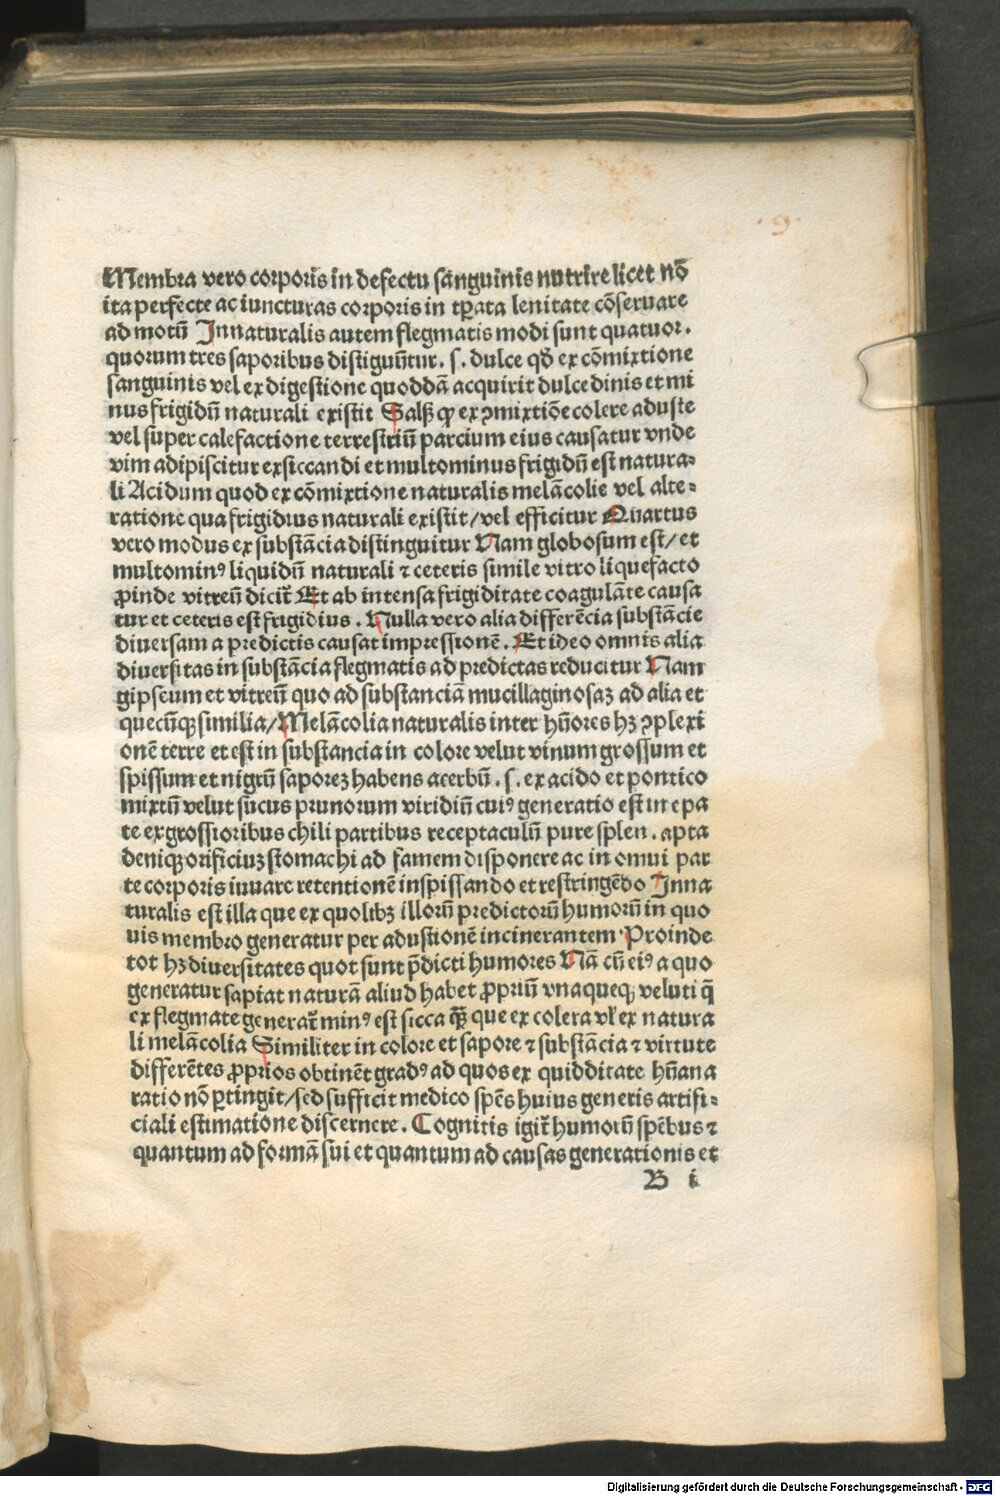 9
Membra vero corporis in defectu sanguinis nutrire licet nō
ita perfecte ac iuncturas corporis in tꝑata lenitate cōseruare
ad motū Innaturalis autem flegmatis modi sunt quatuor.
quorum tres saporibus distigūtur. s. dulce qđ ex cōmixtione
sanguinis vel ex digestione quoddā acquirit dulcedinis et mi
nus frigidū naturali existit Salsꝫ qđ ex ꝯmixtiōe colere aduste
vel super calefactione terrestriū parcium eius causatur vnde
vim adipiscitur exsiccandi et multominus frigidū est natura⸗
li Acidum quod ex cōmixtione naturalis melācolie vel alte⸗
ratione qua frigidius naturali existit/vel efficitur Quartus
vero modus ex substācia distinguitur Nam globosum est/et
multominꝰ liquidū naturali ⁊ ceteris simile vitro liquefacto
ꝓinde vitreū dicit̄ Et ab intensa frigiditate coagulāte causa
tur et ceteris est frigidius. Nulla vero alia differēcia substācie
diuersam a predictis causat impressionē. Et ideo omnis alia
diuersitas in substācia flegmatis ad predictas reducitur Nam
gipseum et vitreū quo ad substanciā mucillaginosaꝫ ad alia et
quecūqꝫ similia/Melācolia naturalis inter hūores hꝫ ꝯplexi
onē terre et est in substancia in colore velut vinum grossum et
spissum et nigrū saporeꝫ habens acerbū. s. ex acido et pontico
mixtū velut sucus prunorum viridiū cuiꝰ generatio est in epa
te ex grossioribus chili partibus receptaculū pure splen. apta
deniqꝫ orificiuꝫ stomachi ad famem disponere ac in omni par
te corporis iuuare retentionē inspissando et restringēdo Inna
turalis est illa que ex quolibꝫ illorū predictorū humorū in quo
uis membro generatur per adustionē incinerantem Proinde
tot hꝫ diuersitates quot sunt p̄dicti humores Nā cū eiꝰ a quo
generatur sapiat naturā aliud habet ꝓpriū vnaqueqꝫ veluti q̄
ex flegmate generat̄ minꝰ est sicca qꝫ̄ que ex colera vl̓ ex natura
li melācolia Similiter in colore et sapore ⁊ substācia ⁊ virtute
differētes ꝓprios obtinēt gradꝰ ad quos ex quidditate hūana
ratio nō ꝑtingit/sed sufficit medico spēs huius generis artifi⸗
ciali estimatione discernere. Cognitis igit̄ humorū spēbus ⁊
quantum ad formā sui et quantum ad causas generationis et
B i
Digitalisierung gefördert durch die Deutsche Forschungsgemeinschaft - DFG